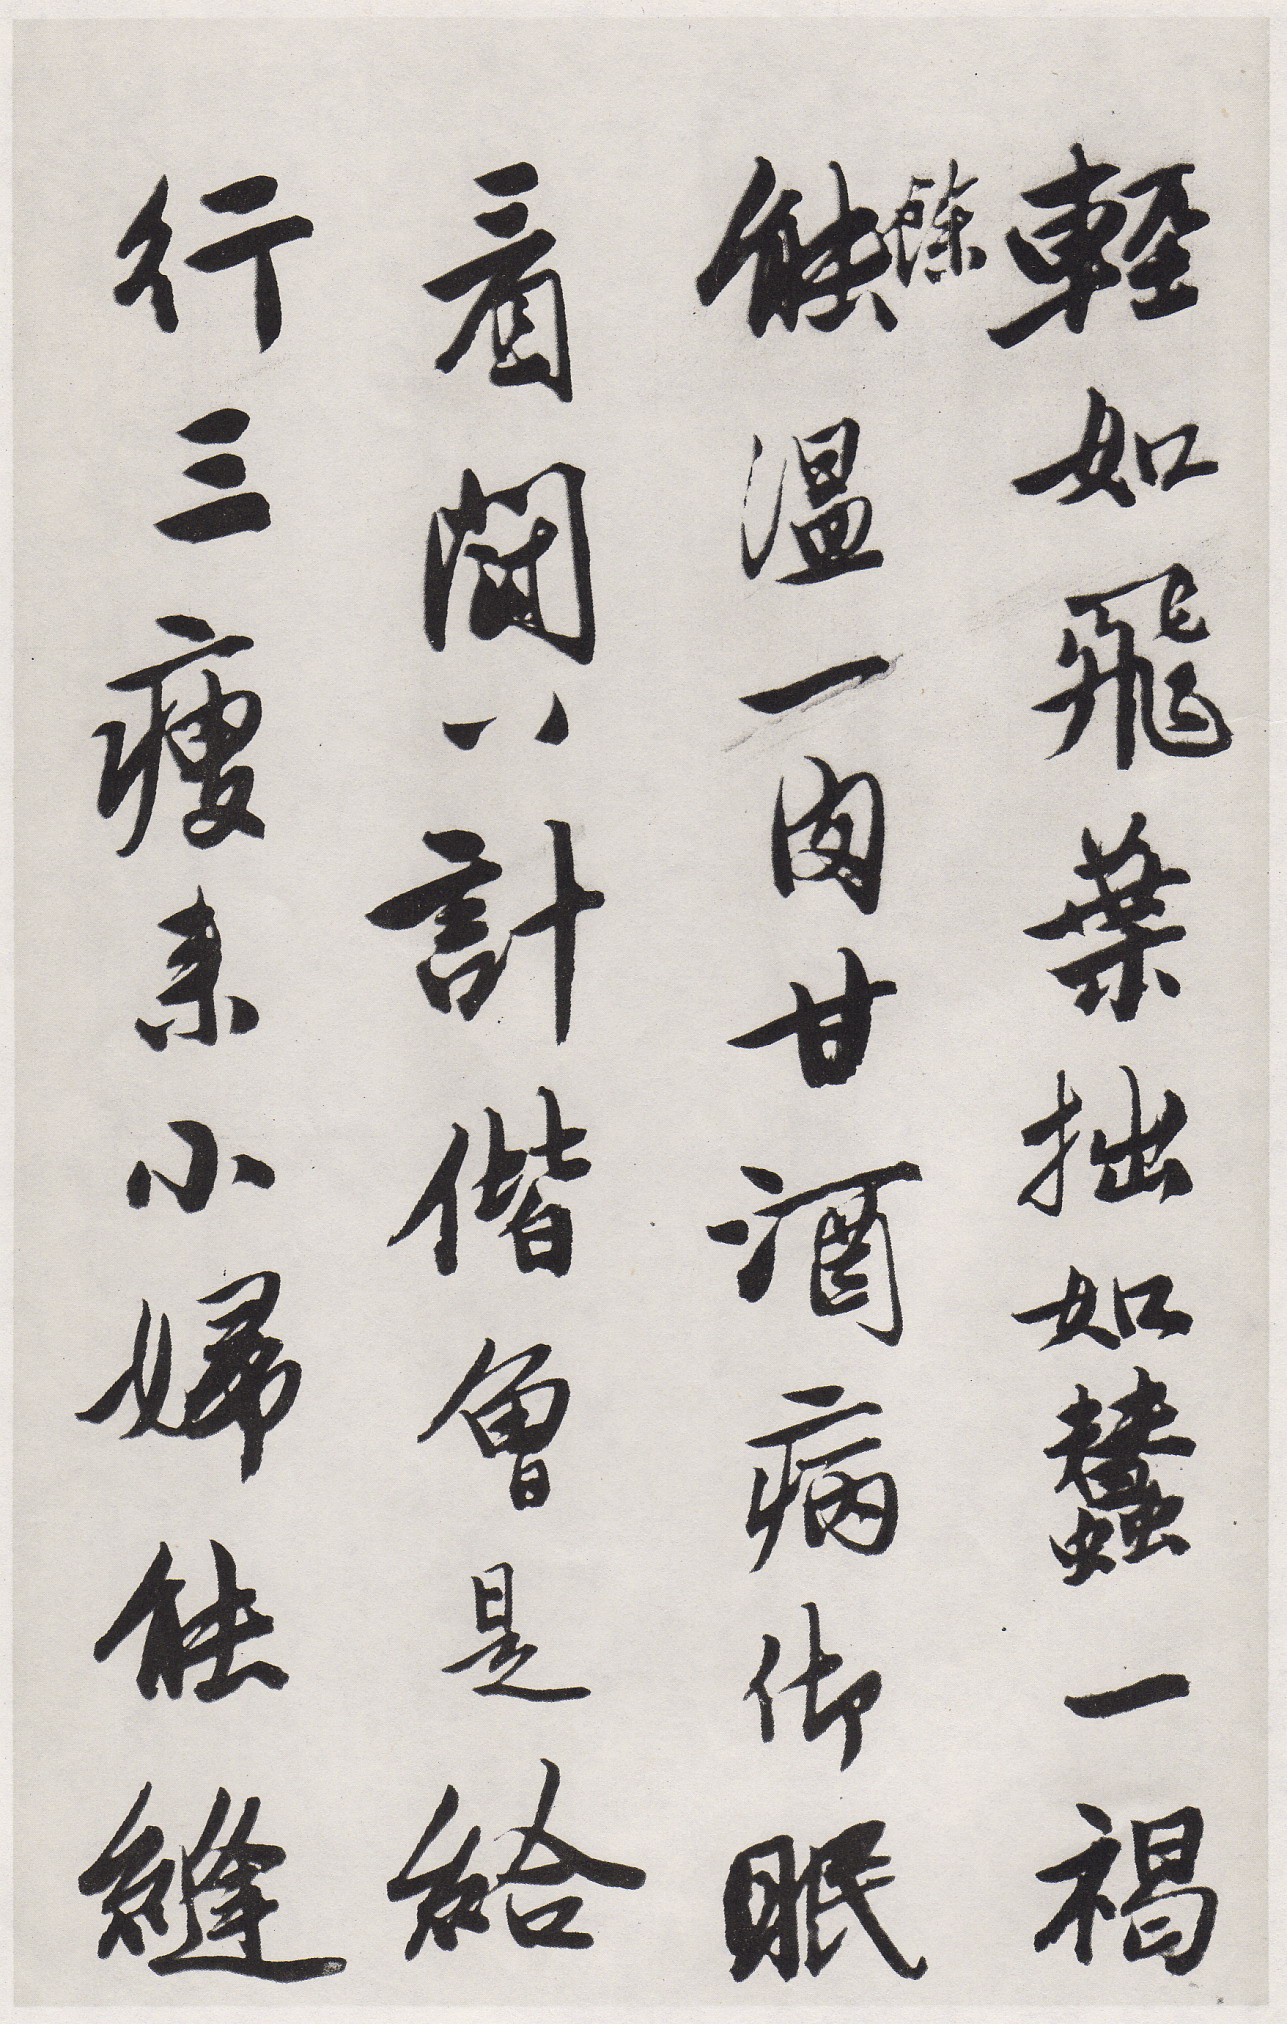 輕如飛葉拙如蠶一褐
餘
能溫一肉甘酒病仰眠
看闘八計偕曾是給
行三瘦來小婦能縫